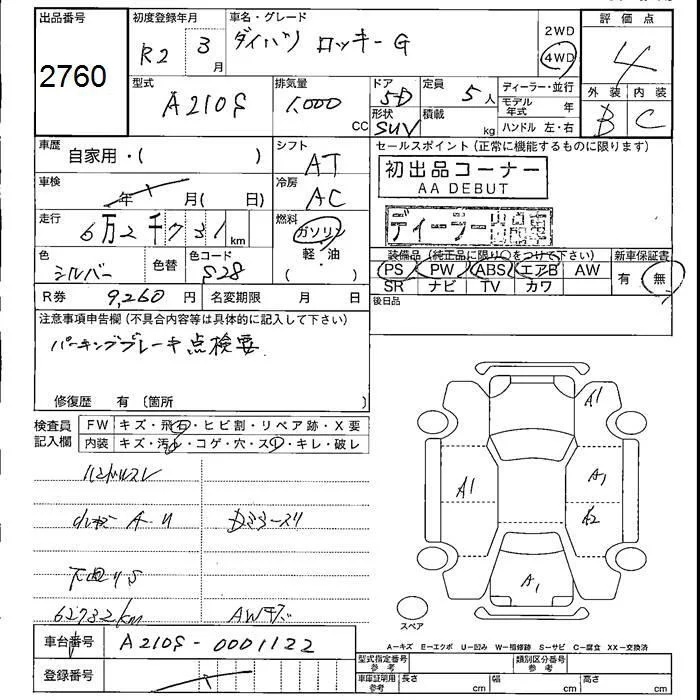 出品番号
2760
初度登録年月
R2 3月
車名・グレード
ダイハツ ロッキーG
2WD
4WD
評価点
4
型式
A210S
排気量
1,000 CC
ドア
5D
形状
SUV
定員
5人
積載
kg
ディーラー・並行
モデル年式 年
ハンドル 左・右
外装 内装
B C
車歴
自家用・( )
シフト
AT
セールスポイント(正常に機能するものに限ります)
初出品コーナー
AA DEBUT
車検
年 月( 日)
冷房
AC
走行
6万2千731km
燃料
ガソリン
軽・油
( )
ディーラー出品車
色
シルバー
色替
色コード
S28
装備品(純正品に限り○をつけて下さい)
PS PW ABS エアB AW
SR ナビ TV カワ
新車保証書
有 無
R券 9,260円
名変期限 月 日
後日品
注意事項申告欄(不具合内容等は具体的に記入して下さい)
パーキングブレーキ点検要
修復歴 有(箇所 )
検査員記入欄
FW キズ・飛石・ヒビ割・リペア跡・X要
内装 キズ・汚れ・コゲ・穴・スレ・キレ・破レ
ハンドルスレ
下回りS
62732km
A1
A1
A1
A2
A1
スペア
車台番号
A210S-0001122
登録番号
A-キズ E-エクボ U-凹み W-補修跡 S-サビ C-腐食 XX-交換済
型式指定番号参考
類別区分番号参考
車庫証明用参考
長さ cm
幅 cm
高さ cm